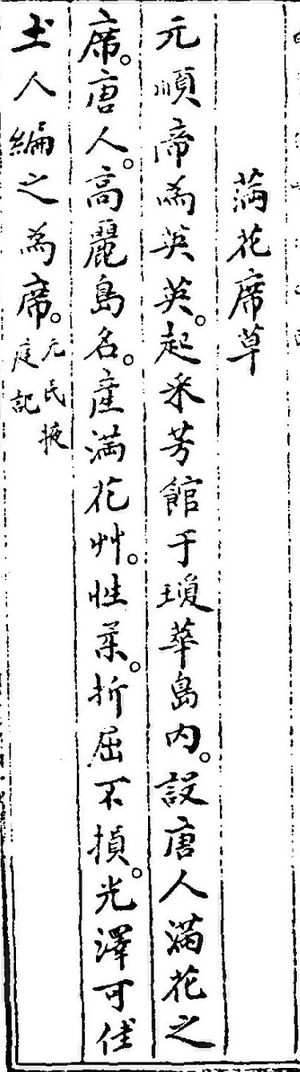 滿花席草
元順帝為英英。起采芳館于瓊華島内。設唐人滿花之
席。唐人。高麗島名。產滿花艸。性柔。折屈不損。光澤可佳
土人編之為席。元氏掖
庭記